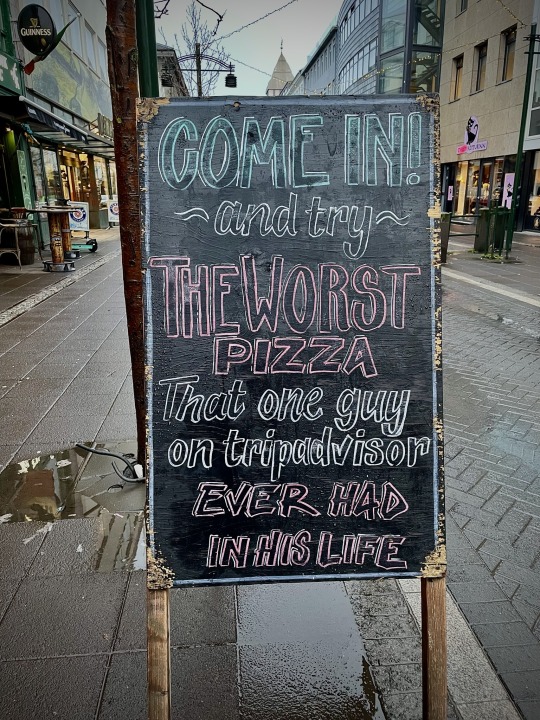 GUINNESS
COME IN!
~and try~
THE WORST
PIZZA
That one guy
on tripadvisor
EVER HAD
IN HIS LIFE